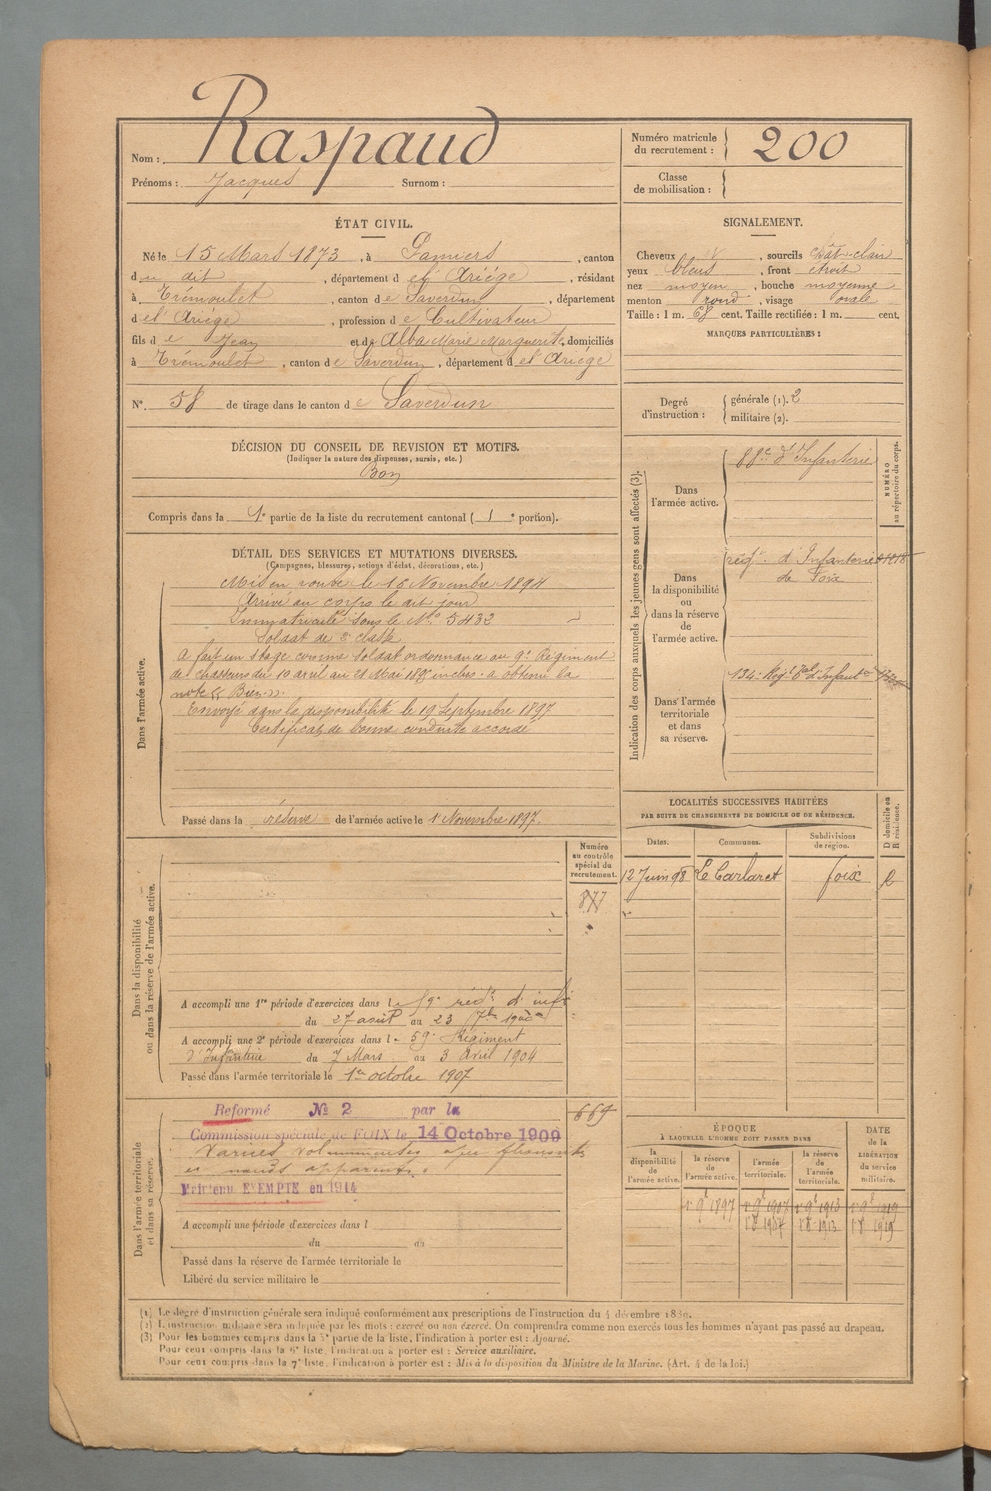 Nom : Raspaud
Prénoms : Jacques Surnom :
Numéro matricule du recrutement : 200
Classe de mobilisation :
ÉTAT CIVIL.
Né le 15 Mars 1873, à Pamiers, canton
du dit, département de l'Ariége, résidant
à Trémoulet, canton de Saverdun, département
de l'Ariége, profession de Cultivateur
fils de Jean et de Alba Marie Marguerite, domiciliés
à Trémoulet, canton de Saverdun, département de l'Ariége
N°. 58 de tirage dans le canton de Saverdun
SIGNALEMENT.
Cheveux , sourcils chât-clair
yeux bleus, front étroit
nez moyen, bouche moyenne
menton rond, visage ovale
Taille : 1 m. 68 cent. Taille rectifiée : 1 m. cent.
MARQUES PARTICULIÈRES :
Degré d'instruction : générale (1). 2
militaire (2).
DÉCISION DU CONSEIL DE REVISION ET MOTIFS.
(Indiquer la nature des dispenses, sursis, etc.)
Bon
Compris dans la 1e partie de la liste du recrutement cantonal ( 1 e portion).
DÉTAIL DES SERVICES ET MUTATIONS DIVERSES.
(Campagnes, blessures, actions d'éclat, décorations, etc.)
Dans l'armée active.
Mis en route le 16 Novembre 1894
Arrivé au corps le dit jour
Immatriculé sous le N° 5432
Soldat de 2e classe
A fait un stage comme soldat ordonnance au 9e Régiment
de chasseurs du 10 avril au 21 Mai inclus. a obtenu la
note « Bien ».
Envoyé dans la disponibilité le 19 Septembre 1897
Certificat de bonne conduite accordé
Passé dans la réserve de l'armée active le 1er Novembre 1897.
Indication des corps auxquels les jeunes gens sont affectés (3).
NUMÉRO au répertoire du corps.
Dans l'armée active.
88e d'Infanterie
Dans la disponibilité ou dans la réserve de l'armée active.
régt d'Infanterie
de Foix
Dans l'armée territoriale et dans sa réserve.
134e Régt Tal d'Infantie
LOCALITÉS SUCCESSIVES HABITÉES
PAR SUITE DE CHANGEMENTS DE DOMICILE OU DE RÉSIDENCE.
Dates. Communes. Subdivisions de région. D domicile ou R résidence.
12 Juin 98 Le Carlaret foix R
Dans la disponibilité ou dans la réserve de l'armée active.
Numéro au contrôle spécial du recrutement.
877
A accompli une 1re période d'exercices dans le 59e régt d'infie
du 27 août au 23 7bre 1900
A accompli une 2e période d'exercices dans le 59e Régiment
d'Infanterie du 7 Mars au 3 avril 1904
Passé dans l'armée territoriale le 1er octobre 1907
Dans l'armée territoriale et dans sa réserve.
669
Reformé N° 2 par la
Commission spéciale de FOIX le 14 Octobre 1909
Varices volumineuses
Maintenu EXEMPTÉ en 1914
A accompli une période d'exercices dans l
du au
Passé dans la réserve de l'armée territoriale le
Libéré du service militaire le
ÉPOQUE
À LAQUELLE L'HOMME DOIT PASSER DANS
la disponibilité de l'armée active. la réserve de l'armée active. l'armée territoriale. la réserve de l'armée territoriale.
DATE de la LIBÉRATION du service militaire.
1er 9e 1897 1er 9e 1907 1er 9e 1913 1er 9e 1919
1er 8e 1907 1er 8e 1913 1er 8e 1919
(1) Le degré d'instruction générale sera indiqué conformément aux prescriptions de l'instruction du 4 décembre 1889.
(2) L'instruction militaire sera indiquée par les mots : exercé ou non exercé. On comprendra comme non exercés tous les hommes n'ayant pas passé au drapeau.
(3) Pour les hommes compris dans la 5e partie de la liste, l'indication à porter est : Ajourné.
Pour ceux compris dans la 6e liste, l'indication à porter est : Service auxiliaire.
Pour ceux compris dans la 7e liste, l'indication à porter est : Mis à la disposition du Ministre de la Marine. (Art. 4 de la loi.)